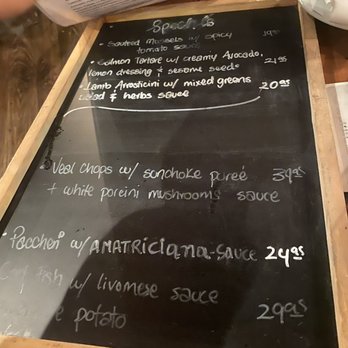 Specials
• Sauteed Mussels w/ spicy
tomato sauce
• Salmon Tartare w/ creamy Avocado,
lemon dressing & sesame seeds
• Lamb Arrosticini w/ mixed greens 20.95
salad & herbs sauce
• Veal Chops w/ sunchoke pureé 39.95
+ white porcini mushrooms sauce
• Paccheri w/ AMATRICIANA-sauce 24.95
w/ livornese sauce
potato 29.95